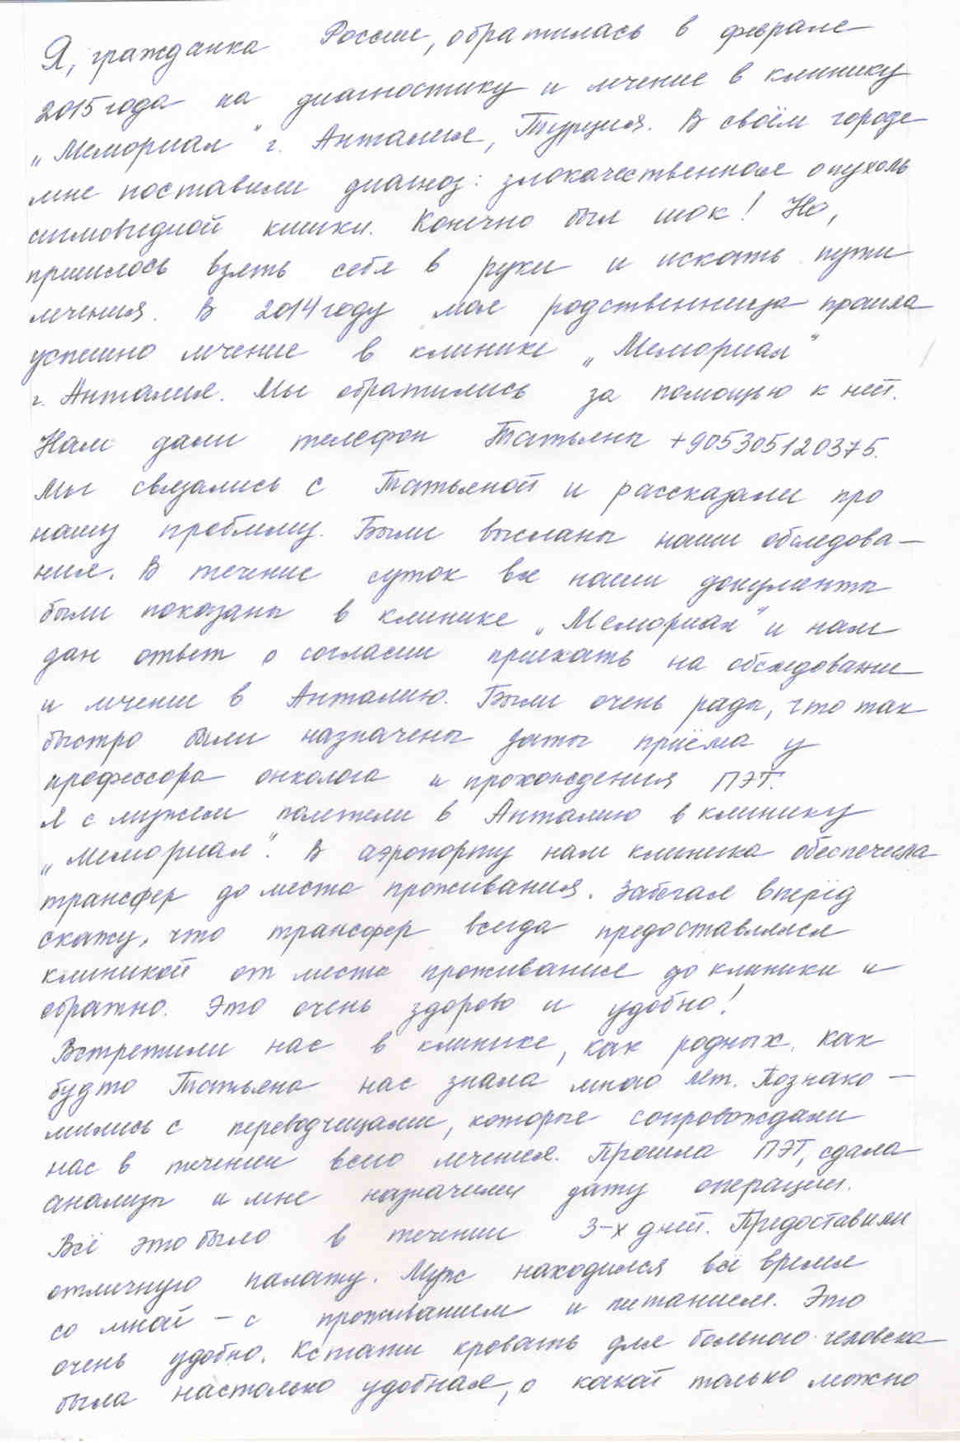 Я, гражданка России, обратилась в феврале
2015 года на диагностику и лечение в клинику
„Мемориал" г. Анталия, Турция. В своём городе
мне поставили диагноз: злокачественная опухоль
сигмовидной кишки. Конечно был шок! Но,
пришлось взять себя в руки и искать пути
лечения. В 2014 году моя родственница прошла
успешно лечение в клинике „Мемориал"
г. Анталия. Мы обратились за помощью к ней.
Нам дали телефон Татьяны +905305120375.
Мы связались с Татьяной и рассказали про
нашу проблему. Были высланы наши обследова-
ния. В течение суток все наши документы
были показаны в клинике „Мемориал" и нам
дан ответ о согласии приехать на обследование
и лечение в Анталию. Были очень рады, что так
быстро были назначены даты приёма у
профессора онколога и прохождения ПЭТ.
Я с мужем полетели в Анталию в клинику
„Мемориал". В аэропорту нам клиника обеспечила
трансфер до места проживания. Забегая вперёд
скажу, что трансфер всегда предоставлялся
клиникой от места проживания до клиники и
обратно. Это очень здорово и удобно!
Встретили нас в клинике, как родных. Как
будто Татьяна нас знала много лет. Познако-
мились с переводчицами, которые сопровождали
нас в течении всего лечения. Прошла ПЭТ, сдала
анализы и мне назначили дату операции.
Всё это было в течении 3-х дней. Предоставили
отличную палату. Муж находился всё время
со мной - с проживанием и питанием. Это
очень удобно. Кстати кровать для больного человека
была настолько удобная, о какой только можно